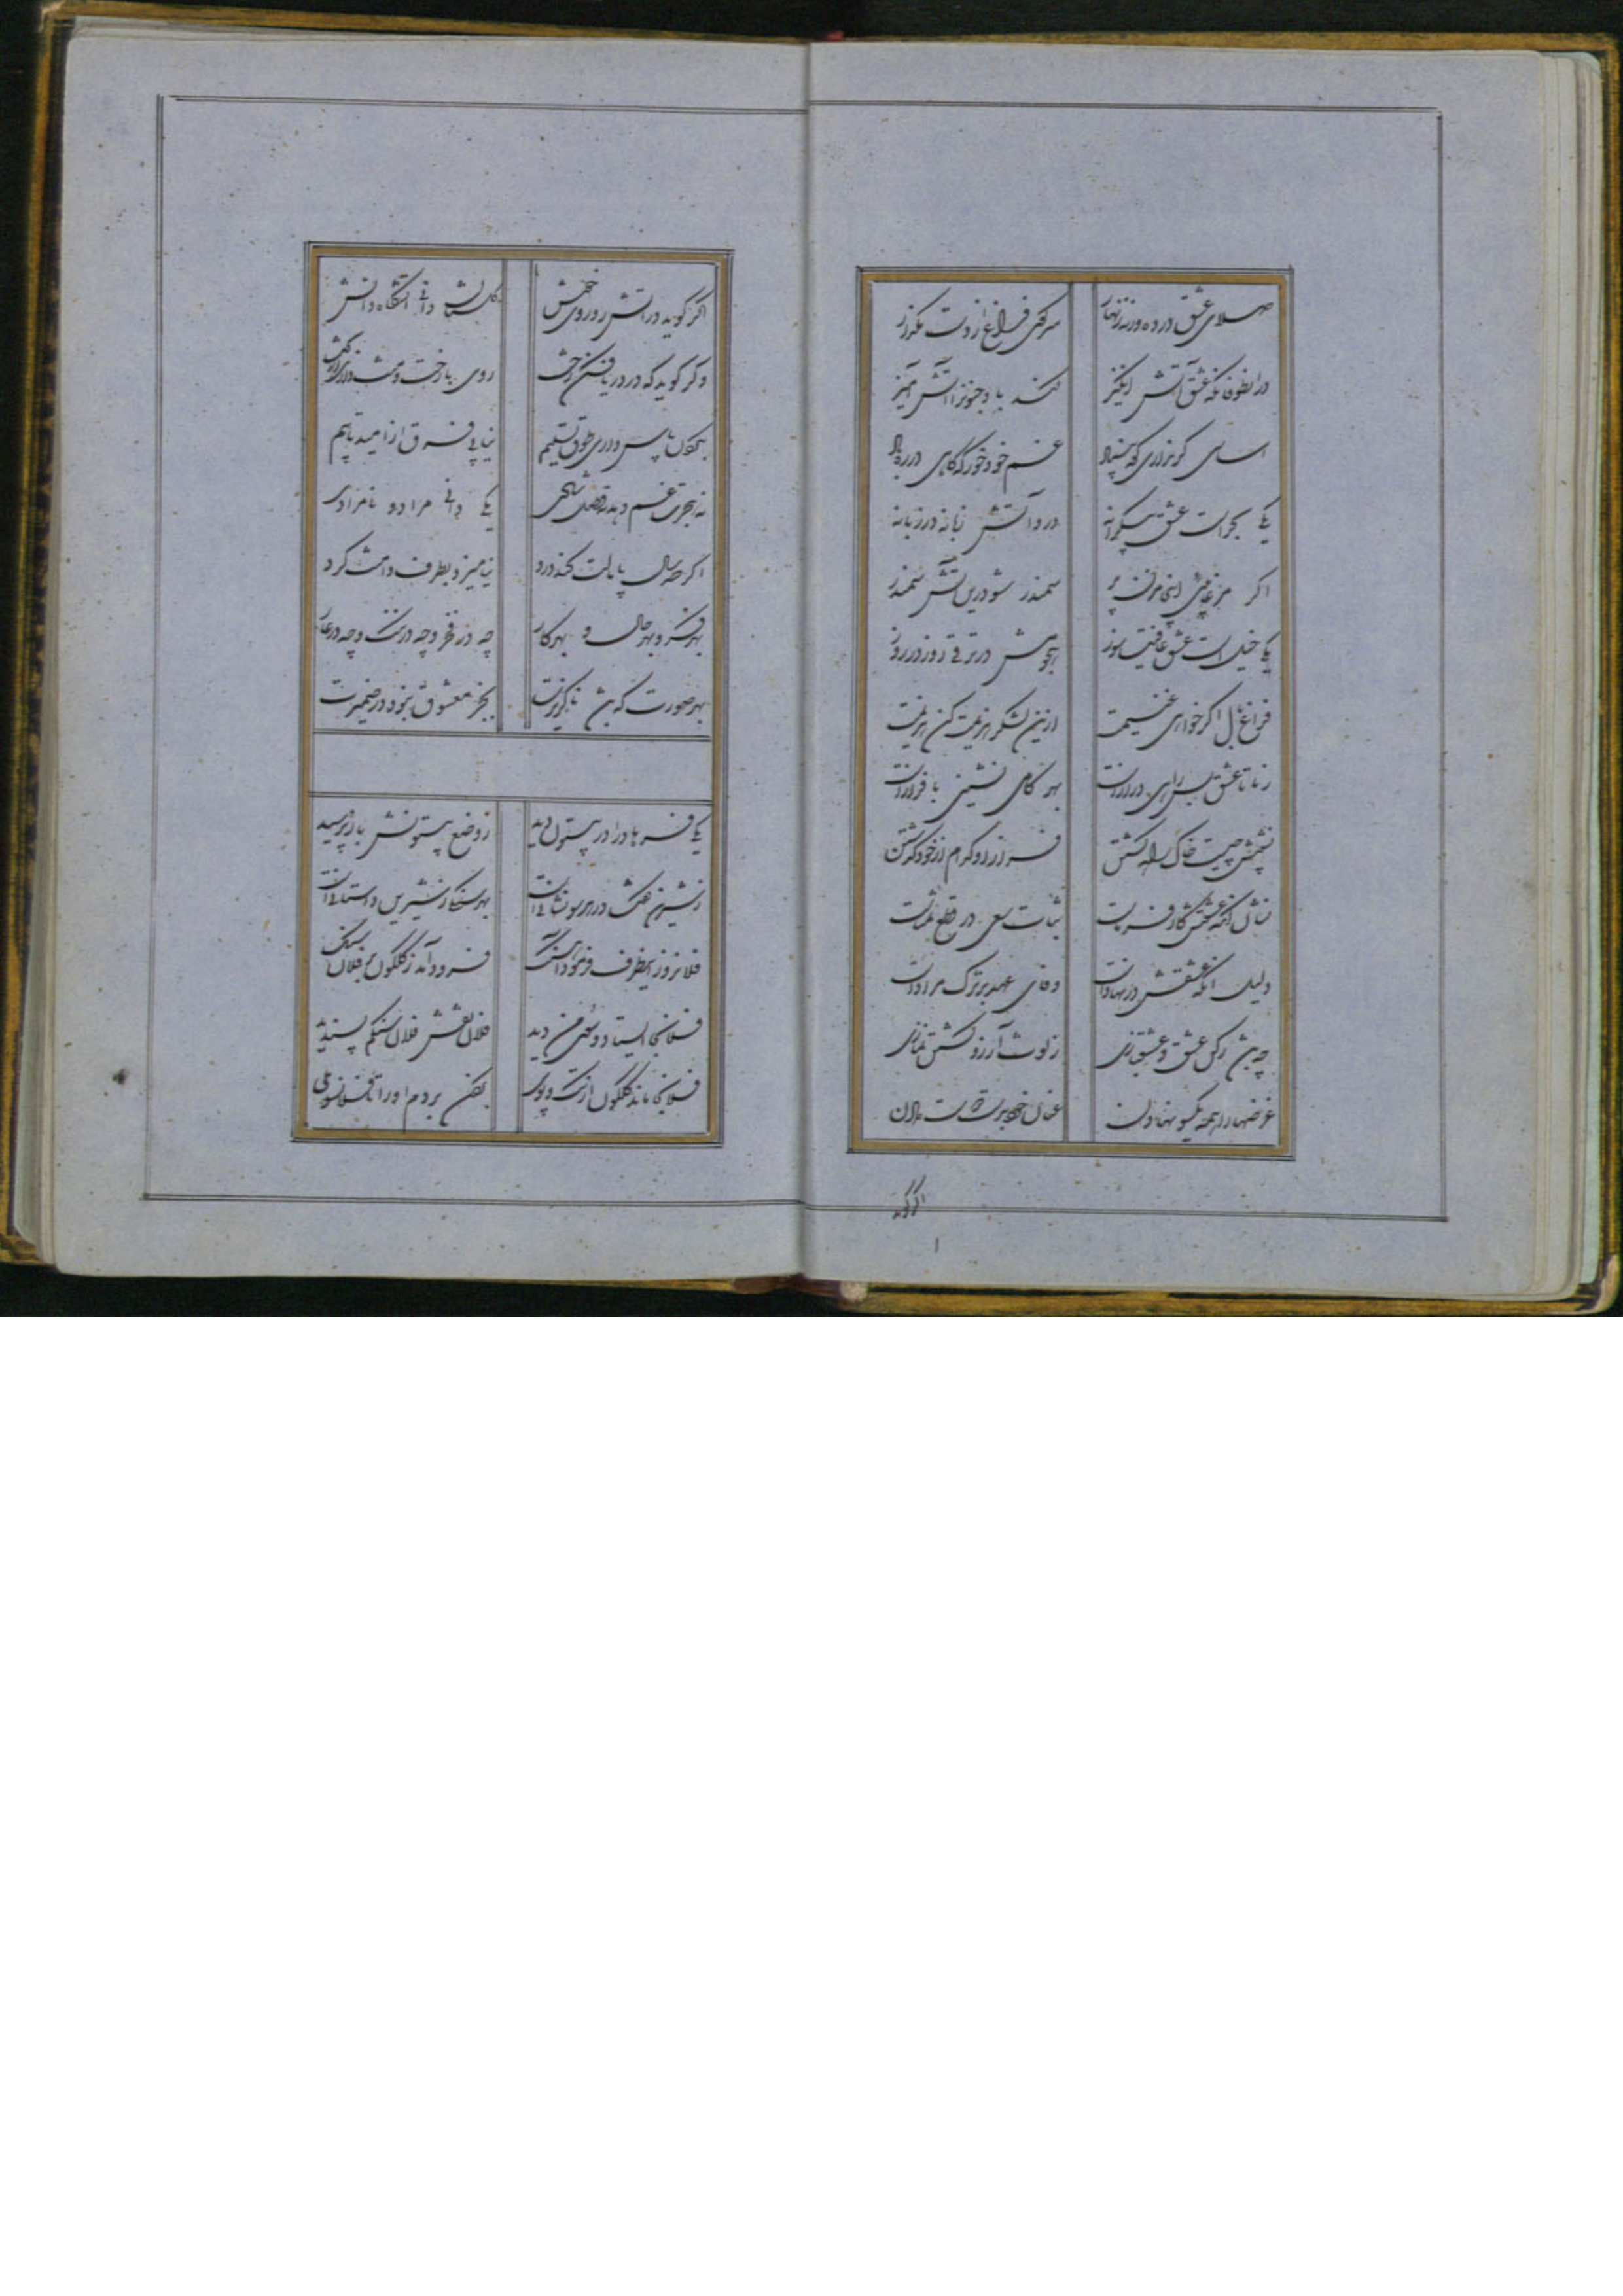 صلای عشق درده ورنه زنهار سر کوی فراغ از دست مگذار
درانطوفانکه عشق آتش انگیز کند باد جنونرا آتش آمیز
اساسی گر نداری کوه بنیاد غم خود خور که کاهی در ره باد
یکی بحرات عشق بیکرانه درو آتش زبانه در زبانه
اگر مرغابیی اینجا مزن پر سمندر شو درین آتش سمندر
یکی خیل است عشق عافیت سوز هجومش در ترقی روز در روز
فراغ بال اگر خواهی غنیمت ازین لشکر هزیمت کن هزیمت
زما تا عشق بس راهی درازاست بهر گامی نشیبی با فرازاست
نشیبش چیست خاک راه گشتن فراز او کدام از خود گذشتن
نشان آنکه عشقش کارفرماست ثبات سعی در قطع تمناست
دلیل انکه عشقش در نهاداست وفای عهد بر ترک مراداست
چه باشد رکن عشق و عشقبازی زلوث آرزو گشتن نمازی
غرضهارا همه یکسو نهادن عنان خود بدست دوست دادن
اگر گوید
اگر گوید در آتش رو روی خوش گلستان دانی اتشگاه و اتش
وگر گوید که در دریا فکن رخت روی با رخت و منت داری از بخت
بگردن پاس داری طوق تسلیم نیابی فرق از امید تا بیم
نه هجرت غم دهد نه وصل شادی یکی دانی مراد و نامرادی
اگر صد سال پامالت کند درد نیامیزد بطرف دامنت گرد
بهر فکر و بهر حال و بهر کار چه در فخر و چه در ننگ و چه در عار
بهر صورت که باشد ناگزیرت بجز معشوق نبود در ضمیرت
یکی فرهاد را در بیستون دید ز وضع بیستونش باز پرسید
زشیرین گفت در هر سو نشانیاست بهر سنگی زشیرین داستانیاست
فلانروز اینطرف فرمود آهنگ فرود آمد ز گلگون بر فلان سنگ
فلانجا ایستاد و سوی من دید فلان نقش فلان سنگم پسندید
فلانجا ماند گلگون از تک و پوی بگردن بردم اورا تا فلانسوی